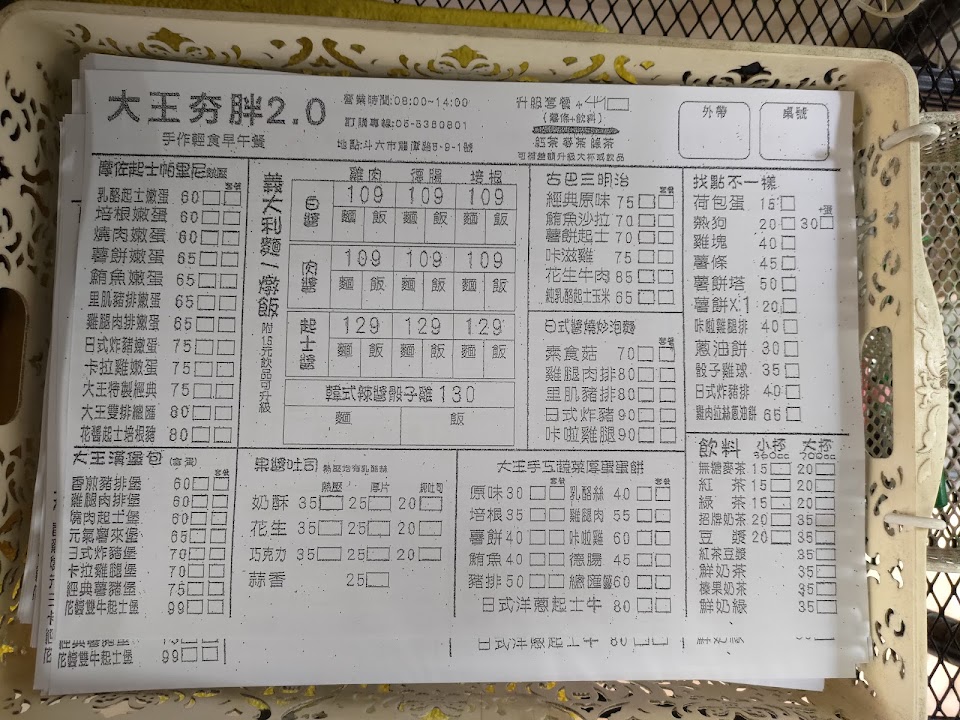 大王夯胖2.0
手作輕食早午餐
營業時間:06:00~14:00
訂購專線:05-5360801
升級套餐+
(薯條+飲料)
紅茶 麥茶 綠茶
外帶
桌號
摩佐起士帕里尼 熱壓
套餐
乳酪起士嫩蛋 60
培根嫩蛋 60
燒肉嫩蛋 60
薯餅嫩蛋 65
鮪魚嫩蛋 65
里肌豬排嫩蛋 65
雞腿肉排嫩蛋 65
日式炸豬嫩蛋 75
卡拉雞嫩蛋 75
大王特製經典 75
大王雙排總匯 80
花醬起士培根豬 80
義大利麵/燉飯
附15元飲品可升級
雞肉 德腸 培根
白醬 109 109 109
麵 飯 麵 飯 麵 飯
肉醬 109 109 109
麵 飯 麵 飯 麵 飯
起士醬 129 129 129
麵 飯 麵 飯 麵 飯
韓式辣醬骰子雞 130
麵 飯
古巴三明治
套餐
經典原味 75
鮪魚沙拉 70
薯餅起士 70
咔滋雞 75
花生牛肉 85
純乳酪起士玉米 65
日式醬燒炒泡麵
套餐
素食菇 70
雞腿肉排 80
里肌豬排 80
日式炸豬 90
咔啦雞腿 90
找點不一樣
荷包蛋 15
+蛋
熱狗 20 30
雞塊 40
薯條 45
薯餅塔 50
薯餅X1 20
咔啦雞腿排 40
蔥油餅 30
骰子雞球 35
日式炸豬排 40
雞肉拉絲蔥油餅 65
大王漢堡包
套餐
香煎豬排堡 60
雞腿肉排堡 60
燒肉起士堡 60
元氣薯來堡 65
日式炸豬堡 70
卡拉雞腿堡 70
經典薯豬堡 75
花醬雙牛起士堡 99
果醬吐司
熱壓 厚片
奶酥 35 25 20
花生 35 25 20
巧克力 35 25 20
蒜香 25
大王手工蔬菜厚蛋蛋餅
套餐 套餐
原味 30 乳酪絲 40
培根 35 雞腿肉 55
薯餅 40 咔啦雞 60
鮪魚 40 德腸 45
豬排 50 總匯 60
日式洋蔥起士牛 80
飲料 小杯 大杯
無糖麥茶 15 20
紅茶 15 20
綠茶 15 20
招牌奶茶 20 35
豆漿 20 35
紅茶豆漿 35
鮮奶茶 35
榛果奶茶 35
鮮奶綠 35
花醬雙牛起士堡 99
日式洋蔥起士牛 80
鮮奶綠 35